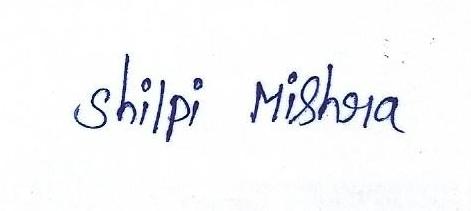 Shilpi Mishra